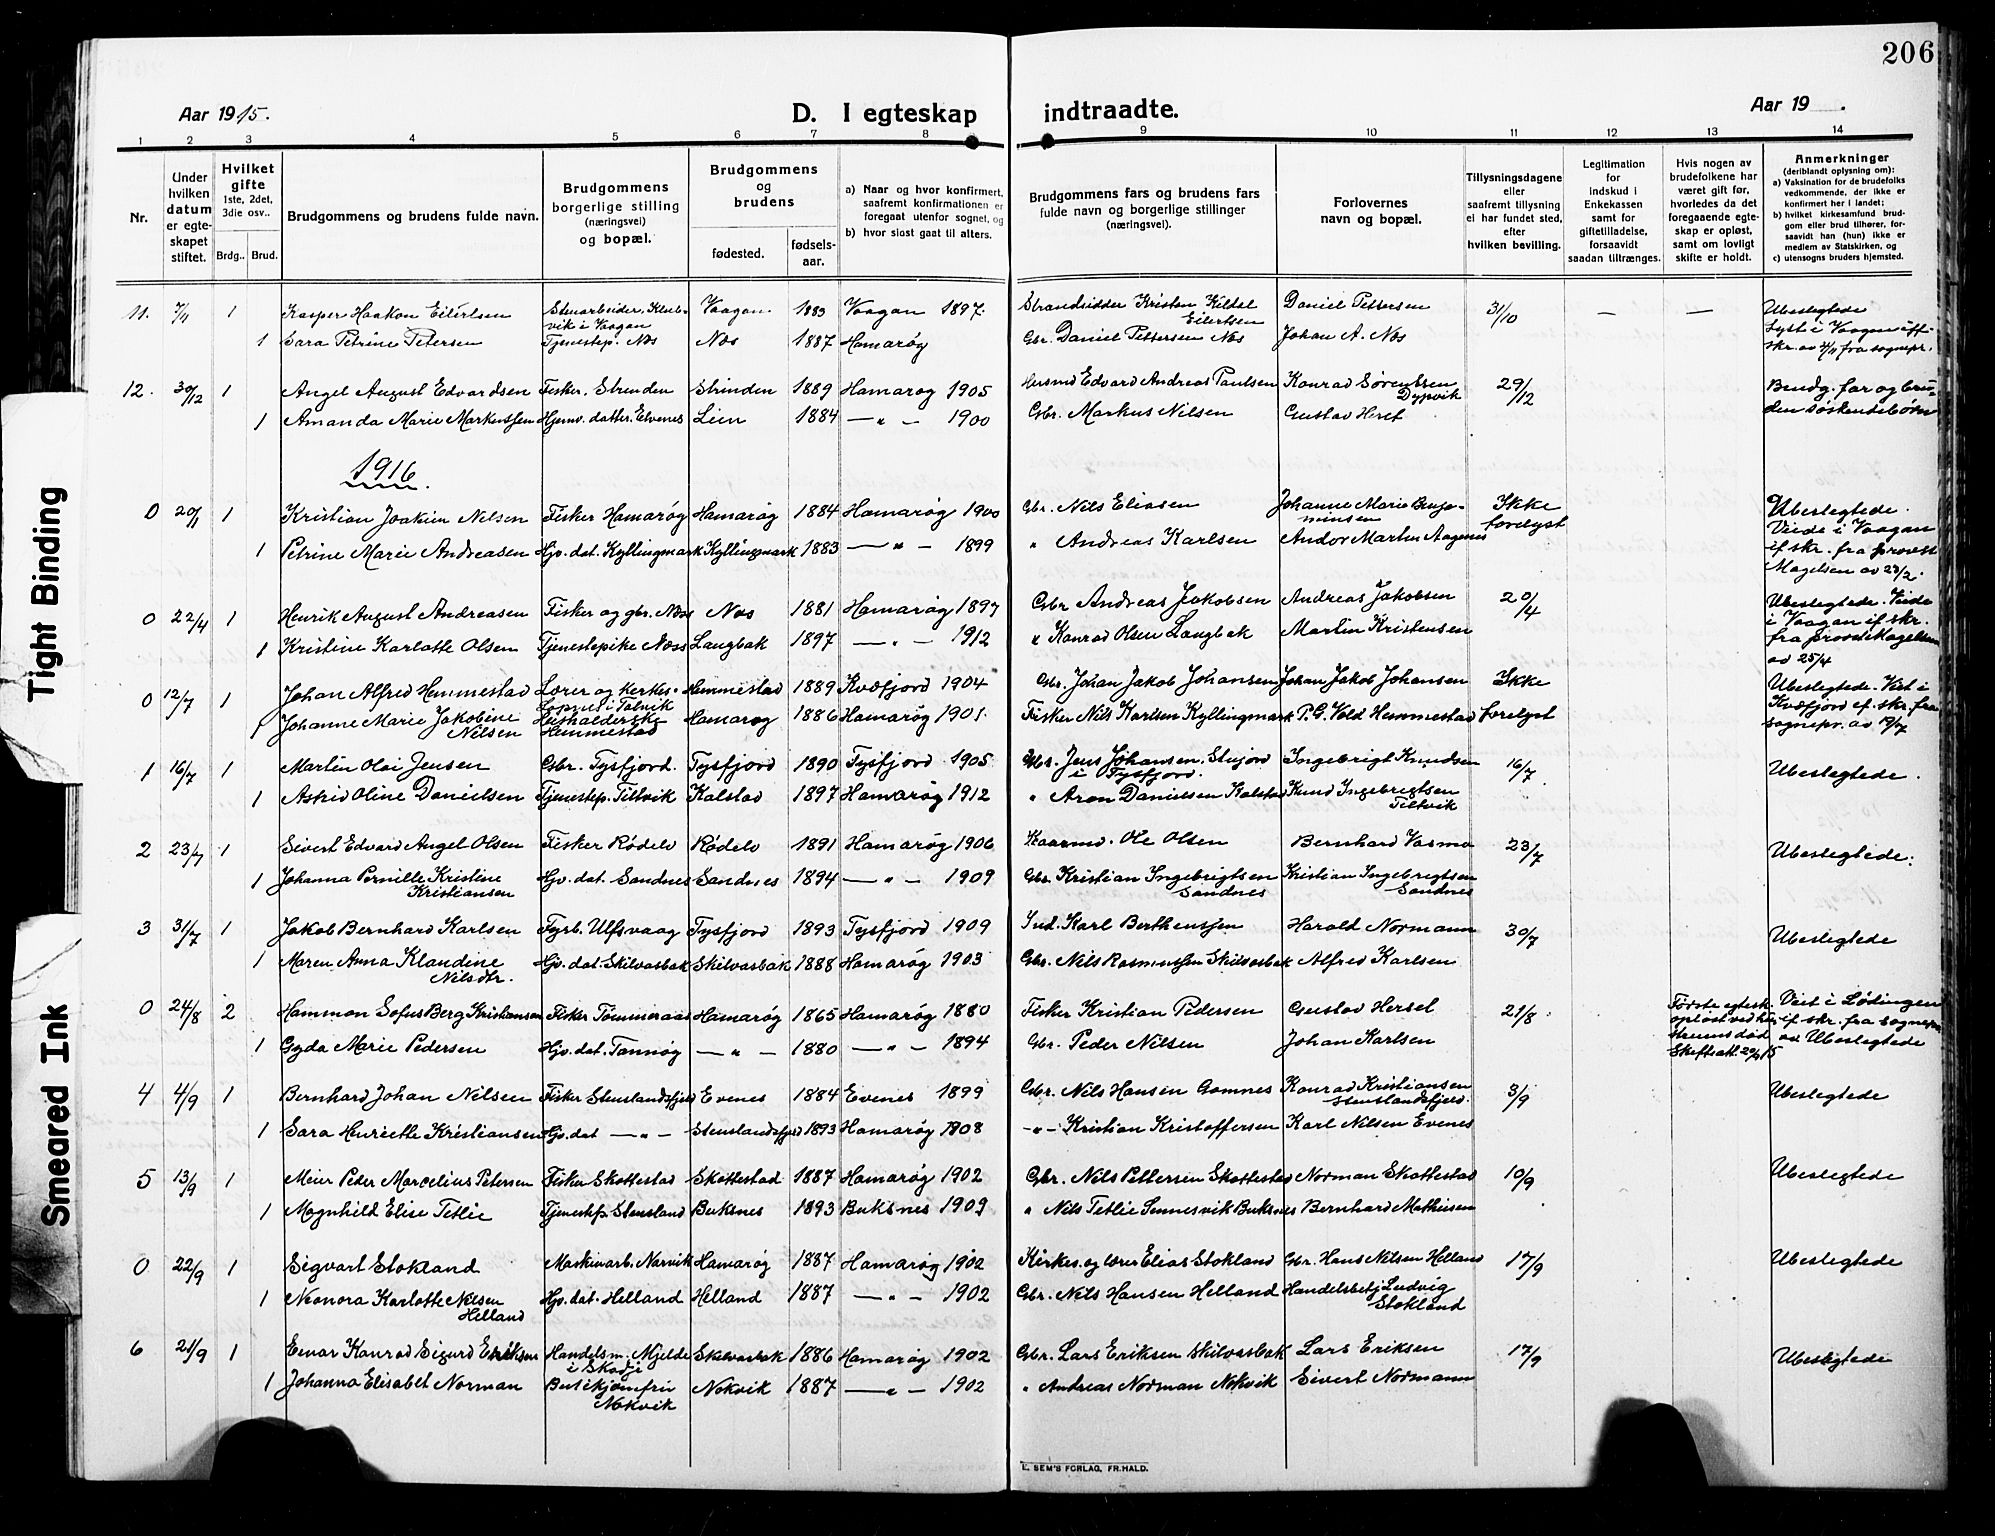 206
Aar 1915.
D. I egteskap indtraadte.
Aar 19 .
1 2 3 4 5 6 7 8 9 10 11 12 13 14
Nr.
Under hvilken datum er egteskapet stiftet.
Hvilket gifte 1ste, 2det, 3die osv..
Brdg.. Brud.
Brudgommens og brudens fulde navn.
Brudgommens borgerlige stilling (næringsvei) og bopæl.
Brudgommens og brudens
fødested.
fødsels-aar.
a) Naar og hvor konfirmert, saafremt konfirmationen er foregaat utenfor sognet, og
b) hvor sidst gaat til alters.
Brudgommens fars og brudens fars fulde navn og borgerlige stillinger (næringsvei).
Forlovernes navn og bopæl.
Tillysningsdagene eller saafremt tillysning ei har fundet sted, efter hvilken bevilling.
Legitimation for indskud i Enkekassen samt for giftetilladelse, forsaavidt saadan tiltrænges.
Hvis nogen av brudefolkene har været gift før, hvorledes da det foregaaende egteskap er opløst, samt om lovligt skifte er holdt.
Anmerkninger (deriblandt oplysning om):
a) Vaksination for de brudefolks vedkommende, der ikke er konfirmert her i landet;
b) hvilket kirkesamfund brudgom eller brud tilhører, forsaavidt han (hun) ikke er medlem av Statskirken, og
c) utensogns bruders hjemsted.
11. 7/11 1 Kasper Haakon Eilertsen Vaagan. 1883 Vaagan 1897. Kristen Kildal Eilertsen Daniel Pettersen 31/10 — — Ubeslegtede
1 Sara Petrine Petersen Tjenestep. Næs Næs 1887 Hamarøy Gbr. Daniel Pettersen Næs Johan A. Næs
12. 30/12 1 Angel August Edvardsen Fisker. Strinden Strinden 1889 Hamarøy 1905 Edvard Andreas Paulsen Konrad Sørensen Dypvik 29/12 Brudg. far og bruden søskendebørn
1 Amanda Marie Markussen Hjemv. datter. Elvenes Lien 1884 — „ — 1900 Gbr. Markus Nilsen Gustav Herst
1916.
0 20/1 1 Kristian Joakim Nilsen Fisker Hamarøy Hamarøy 1884 Hamarøy 1900 Gbr. Nils Eliasen Johanne Marie Benjaminsen Ikke forelyst Ubeslegtede. Viede i Vaagan if skr. fra provst Magelsen av 23/2.
1 Petrine Marie Andreasen Hjv. dat. Kyllingmark Kyllingmark 1883 — „ — 1899 „ Andreas Karlsen Andor Martin Aagenes
0 22/4 1 Henrik August Andreasen Fisker og gbr. Næss Næs 1881 Hamarøy 1897 Gbr Andreas Jakobsen Andreas Jakobsen 20/4 Ubeslegtede. Viede i Vaagan if skr. fra provst Magelsen av 25/4
1 Kristine Karlotte Olsen Tjenestepike Næss Langbak 1897 — „ — 1912 „ Konrad Olsen Langbak Martin Kristensen
0 12/7 1 Johan Alfred Hemmestad Lærer og Kerkes. Hemmestad 1889 Kvæfjord 1904 Gbr. Johan Jakob Johansen Johan Jakob Johansen Ikke forelyst Ubeslegtede. Viet i Kvæfjord if. skr. fra sognepr. av 19/7
1 Johanne Marie Jakobine Nilsen Hemmestad Hamarøy 1886 Hamarøy 1901. Fisker Nils Karlsen Kyllingmark P. G. Vold Hemmestad
1 16/7 1 Martin Olai Jensen Gbr. Tysfjord. Tysfjord 1890 Tysfjord 1905 Gbr. Jens Johansen. i Tysfjord. Ingebrigt Knudsen 16/7 Ubeslegtede.
1 Astrid Oline Danielsen Tjenestep. Tiltvik Kalstad 1897 Hamarøy 1912 „ Aron Danielsen Kalstad Knud Ingebrigtsen Tiltvik
2 23/7 1 Sivert Edvard Angel Olsen Fisker Rødelv Rødelv 1891 Hamarøy 1906 Kaarmd. Ole Olsen Bernhard Vasmo 23/7 Ubeslegtede.
1 Johanna Pernille Kristine Kristiansen Hjv. dat. Sandnes Sandnes 1894 — „ — 1909 Gbr Kristian Ingebrigtsen Sandnes Kristian Ingebrigtsen Sandnes
3 31/7 1 Jakob Bernhard Karlsen Fyrb. Ulfsvaag Tysfjord 1893 Tysfjord 1909 Ind. Karl Berthenssen Harald Normann 30/7 Ubeslegtede
1 Maren Anna Klaudine Nilsdtr. Hjv. dat. Skilvasbak Skilvasbak 1888 Hamarøy 1903 Gbr. Nils Rasmussen Skilvasbak Alfred Karlsen
0 24/8 2 Hammon Sofus Berg Kristiansen Fisker Tømmeraas Hamarøy 1865 Hamarøy 1880 Fisker Kristian Pedersen Gustav Hersel 21/8 Første egtesk. opløst ved hustruens død Viet i Lødingen if skr. fra sognepr. Ubeslegtede
1 Gyda Marie Pedersen Hjv. dat. Tannøy — „ — 1880 — „ — 1894 Gbr. Peder Nilsen Johan Karlsen
4 4/9 1 Bernhard Johan Nilsen Fisker Stenslandsfjeld Evenes 1884 Evenes 1899 Gbr. Nils Hansen Gamnes Konrad Kristiansen Stenslandsfjeld. 3/9 Ubeslegtede
1 Sara Henriette Kristiansen Hjv. dat — „ — Stenslandsfjeld 1893 Hamarøy 1908 — „ — Kristian Kristoffersen Karl Nilsen Evenes
5 13/9 1 Meier Peder Marcelius Petersen Fisker Skottestad Skottestad 1887 Hamarøy 1902 Gbr. Nils Pettersen Skottestad Norman Skottestad 10/9 Ubeslegtede
1 Magnhild Elise Tetlie Tjenestep. Stensland Buksnes 1893 Buksnes 1909 „ Nils Tetlie Sennesvik Buksnes Bernhard Mathisen
0 22/9 1 Sigvart Stokland Maskinarb. Narvik Hamarøy 1887 Hamarøy 1902 Kirkes. og lærer Elias Stokland Gbr. Hans Nilsen Helland 17/9 Ubeslegtede
1 Neonora Karlotte Nilsen Helland Hjv. dat. Helland Helland 1887 — „ — 1902 Gbr. Nils Hansen Helland Handelsbetj. Ludvig Stokland
6 21/9 1 Einar Konrad Sigurd Eriksen Handelsm. Mjelde i Skodje Skilvasbak 1886 Hamarøy 1902 Gbr. Lars Eriksen Skilvasbak Lars Eriksen 17/9 Ubeslegtede
1 Johanna Elisabet Norman Butikjomfru Nokvik Nokvik 1887 — „ — 1902 „ Andreas Norman Nokvik Sivert Normann
E. SEM'S FORLAG, FR.HALD.
Tight Binding
Smeared Ink